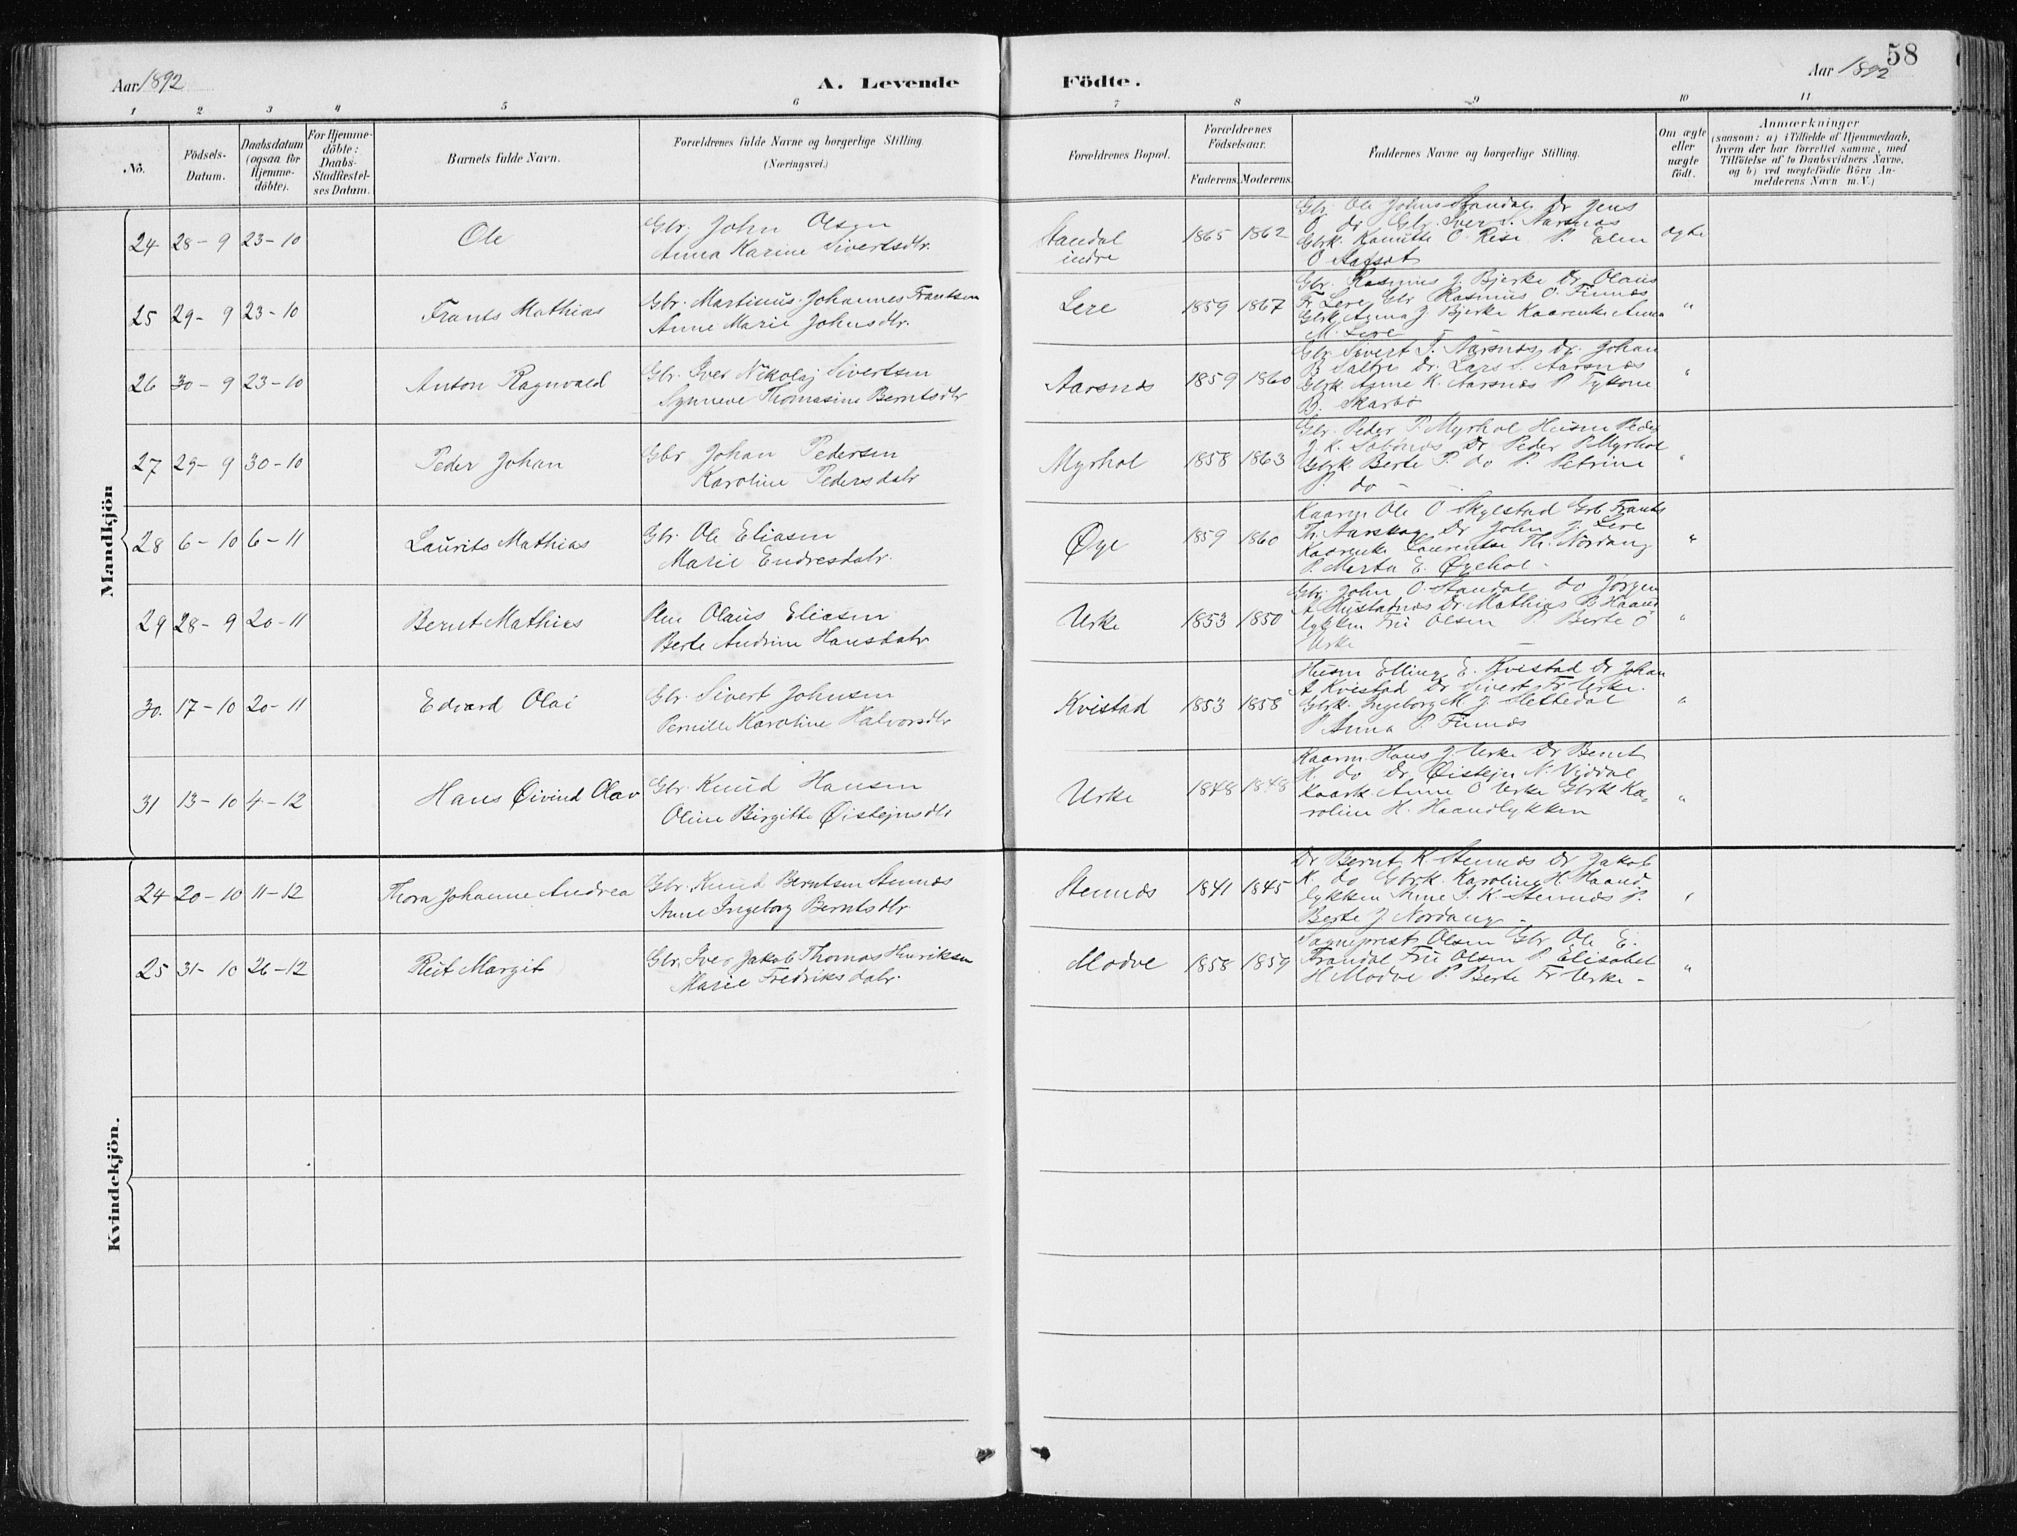 58
Aar 1892
A. Levende
Födte.
Aar 1892
1 2 3 4 5 6 7 8 9 10 11
No.
Födsels-
Datum.
Daabsdatum
(ogsaa for
Hjemme-
döbte).
For Hjemme-
döbte:
Daabs-
Stadfæstel-
ses Datum.
Barnets fulde Navn.
Forældrenes fulde Navne og borgerlige Stilling
(Næringsvei.)
Forældrenes Bopæl.
Forældrenes
Födselsaar.
Faderens. Moderens.
Faddernes Navne og borgerlige Stilling.
Om ægte
eller
uægte
födt.
Anmærkninger
(saasom: a) i Tilfælde af Hjemmedaab,
hvem der har forrettet samme, med
Tilföielse af to Daabsvidners Navne,
og b) ved uægtefödte Börn An-
melderens Navn m. V.)
Mandkjön
24 28-9 23-10 Ole
Gbr. John Olsen
Anna Karine Sivertsdtr.
Standal
indre
1865 1862
Gbr. Ole Johns Standal Dr Jens
O. do Gbr. Iver S. Aarsnæs
Gbrk. Kanutte O. Rise P. Elen
O Aarsæt
ægte
25 29-9 23-10 Frants Mathias
Gbr. Martinus Johannes Frantsen
Anne Marie Johnsdtr.
Lere
1859 1867
Gbr. Rasmus J. Bjerke Dr Olaus
Fr. Lere Gbr Rasmus O. Finnæs
Gbrk Anna J. Bjerke Kaarenke Anna
M. Lere
"
26 30-9 23-10 Anton Ragnvald
Gbr. Iver Nikolaj Sivertsen
Synneve Thomasine Berntsdtr
Aarsnæs
1859 1860
Gbr Sivert I. Aarsnæs Dr. Johan
B Saltre Dr. Lars S. Aarsnæs
Gbrk Anne K. Aarsnæs P.
B. Skarbø
"
27 29-9 30-10 Peder Johan
Gbr Johan Pedersen
Karoline Pedersdatr
Myrhol
1858 1863
Gbr. Peder P. Myrhol Husm Peder
J. K. Dr Peder P Myrhol
Gbrk Berte P. do P. Petrine
P. do -
"
28 6-10 6-11 Laurits Mathias
Gbr. Ole Eliasen
Marie Endresdatr.
Øye
1859 1860
Kaarm Ole O Skylstad Gbr Frants
Th. Aarskog Dr John J. Lere
Kaarenke Laurentse Th. Nordang
P Marta E. Øyehol -
"
29 28-9 20-11 Bernt Mathias
Olaus Eliasen
Berte Andrine Hansdatr
Urke
1853 1850
Gbr. John O. Standal do Jørgen
A Hustadnæs Dr Mathias B Haand
lykken Fru Olsen P Berte O
Urke
"
30. 17-10 20-11 Edvard Olai
Gbr Sivert Johnsen
Pernille Karoline Halvorsdtr
Kvistad
1853 1858
Husm Elling E. Kvistad Dr Johan
A Kvistad Dr Sivert Fr Urke.
Gbrk. Ingeborg M J Slettedal
P Anna P. Finnæs
"
31 13-10 4-12 Hans Øivind Olav
Gbr Knud Hansen
Oline Birgitte Øistejnsdtr
Urke
1848 1848
Kaarm Hans J. Urke Dr Bernt
H. do Dr. Øistejn N. Viddal
Kaark Anne O Urke Gbrk Ka-
roline H. Haandlykken
"
Kvindekjön.
24 20-10 11-12 Thora Johanne Andrea
Gbr. Knud Berntsen Stennæs
Anne Ingeborg Berntsdtr
Stennæs
1841 1845
Dr Bernt K. Stennæs Dr Jakob
K. do Gbrk. Karoline H Haand
lykken Anne S. K. Stennæs P.
Berte J. Nordang -
"
25 31-10 26-12 Rut Margit
Gbr. Iver Jakob Thomas Henriksen
Marie Fredriksdatr.
Modve
1858 1859
Sogneprest Olsen Gbr. Ole E.
Trandal Fru Olsen P Elisabet
H Modve P. Berte Fr Urke -
"